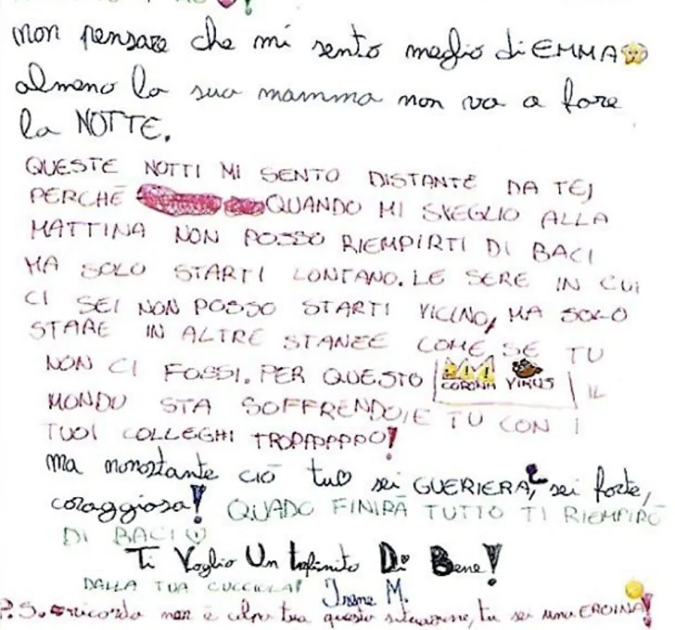 non pensare che mi sento meglio di EMMA
almeno la sua mamma non va a fare
la NOTTE.
QUESTE NOTTI MI SENTO DISTANTE DA TE,
PERCHÉ QUANDO MI SVEGLIO ALLA
MATTINA NON POSSO RIEMPIRTI DI BACI
MA SOLO STARTI LONTANO. LE SERE IN CUI
CI SEI NON POSSO STARTI VICINO, MA SOLO
STARE IN ALTRE STANZE COME SE TU
NON CI FOSSI. PER QUESTO CORONA VIRUS IL
MONDO STA SOFFRENDO E TU CON I
TUOI COLLEGHI TROPPO!
ma nonostante ciò tu sei GUERIERA, sei forte,
coraggiosa! QUADO FINIRÀ TUTTO TI RIEMPIRÒ
DI BACI
Ti Voglio Un Infinito Di Bene!
DALLA TUA CUCCIOLA! Irene M.
P.S. ricorda non è colpa tua questa situazione, tu sei una EROINA!